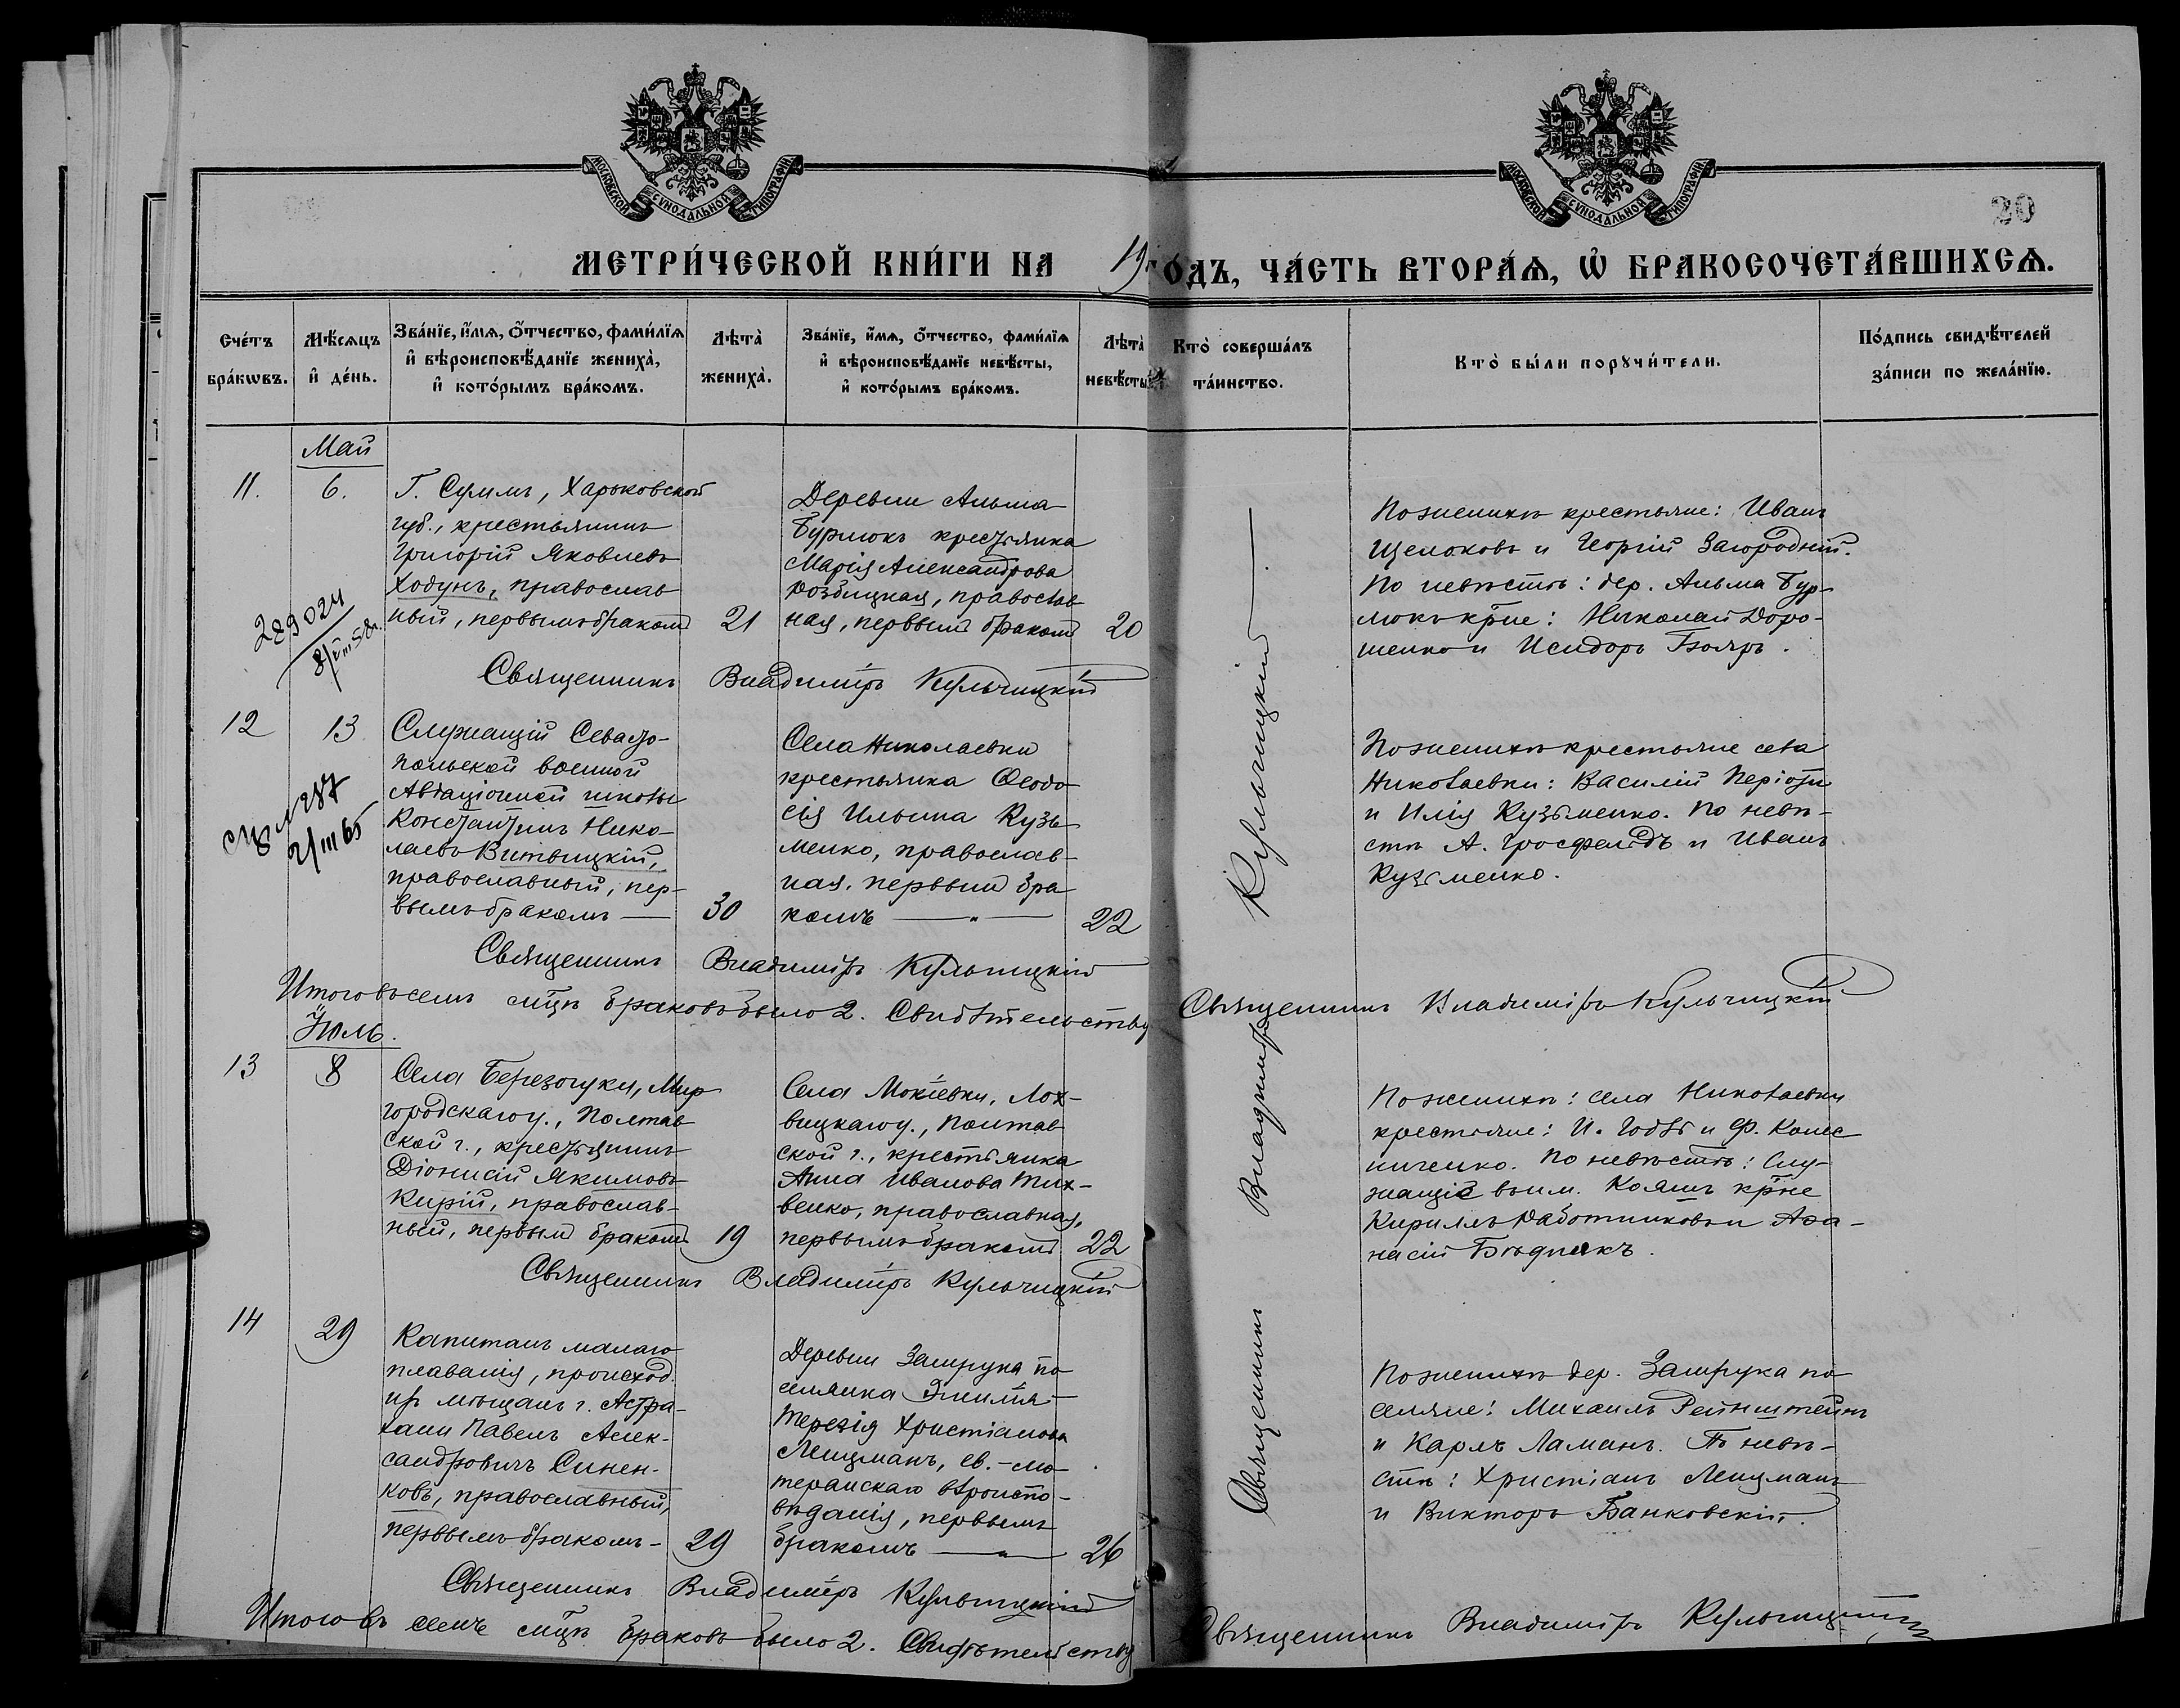 МОСКОВСКОЙ СѴНОДАЛЬНОЙ ТИПОГРАФІИ
МОСКОВСКОЙ СѴНОДАЛЬНОЙ ТИПОГРАФІИ
20
МЕТРИ́ЧЕСКОЙ КНИ́ГИ НА 19 го́дъ, ЧА́СТЬ ВТОРА́Ѧ, Ѽ БРАКОСОЧЕТА́ВШИХСѦ.
Сче́тъ бра́кѡвъ.
Мѣ́сѧцъ и҆ де́нь.
Зва́нїе, и҆́мѧ, ѻ҆́тчество, фами́лїѧ и҆ вѣроисповѣ́данїе жениха̀, и҆ кото́рымъ бра́комъ.
Лѣта̀ жениха̀.
Зва́нїе, и҆́мѧ, ѻ҆́тчество, фами́лїѧ и҆ вѣроисповѣ́данїе невѣ́сты, и҆ кото́рымъ бра́комъ.
Лѣта̀ невѣ́сты
Кто̀ соверша́лъ та́инство.
Кто̀ бы́ли порꙋчи́тели.
По́дпись свидѣ́телей за́писи по жела́нїю.
Май
11.
6.
Г. Сумъ, Харьковской
губ., крестьянинъ
Григорій Яковлевъ
Ходунъ, православ
ный, первымъ бракомъ
21
Деревни Альма
Бурлюкъ крестьянка
Марія Александрова
православ
ная, первымъ бракомъ
20
По женихѣ крестьяне: Иванъ
Щелоковъ и Георгій Загородній.
По невѣстѣ: дер. Альма Бур-
люкъ кр̃не: Николай Доро-
шенко и Исидоръ Бояръ.
289024
Священникъ Владиміръ Кульчицкій
12
13
Служащій Севасто-
польской военной
Авіаціонной школы
Константинъ Нико-
лаевъ Витвицкій,
православный, пер-
вымъ бракомъ —
30
Села Николаевки
крестьянка Ѳеодо
сія Ильина Кузь
менко, православ-
ная, первымъ бра
комъ — " —
22
По женихѣ крестьяне села
Николаевки: Василій
и Илія Кузьменко. По невѣ-
стѣ А. Гросфельдъ и Иванъ
Кузьменко.
N 287
2/III 65
Священникъ Владиміръ Кульчицкій
Итого въ семъ мц̃ѣ браковъ было 2. Свидѣтельству Священникъ Владиміръ Кульчицкій
Іюль.
13
8
Села Березотуки, Мир
городскаго у., Полтав
ской г., крестьянинъ
Діонисій Якимовъ
Кирій, православ-
ный, первымъ бракомъ
19
Села Мокіевки, Лох-
вицкаго у., Полтав
ской г., крестьянка
Анна Иванова Тих-
венко, православная,
первымъ бракомъ
22
По женихѣ: села Николаевки
крестьяне: И. и Ф. Колес
ниченко. По невѣстѣ: Слу-
жащіе въ им. Кояшъ кр̃не
Кириллъ Работниковъ и Аѳа-
насій Бѣднякъ.
Священникъ Владиміръ Кульчицкій
14
29
Капитанъ малаго
плаванія, происход.
изъ мѣщанъ г. Астра-
хани Павелъ Алек-
сандровичъ Синен-
ковъ, православный,
первымъ бракомъ -
29
Деревни Зашрука по
селянка Эмилія-
Терезія Христіанова
Лецманъ, ев.-лю-
теранскаго вѣроиспо-
вѣданія, первымъ
бракомъ — " —
26
По женихѣ дер. Зашрука по
селяне: Михаилъ Рейнштейнъ
и Карлъ Ламанъ. По невѣ-
стѣ: Христіанъ Лецманъ
и Викторъ Банковскій.
Священникъ Владиміръ Кульчицкій
Итого въ семъ мц̃ѣ браковъ было 2. Свидѣтельству Священникъ Владиміръ Кульчицкій
Священникъ Владиміръ Кульчицкій